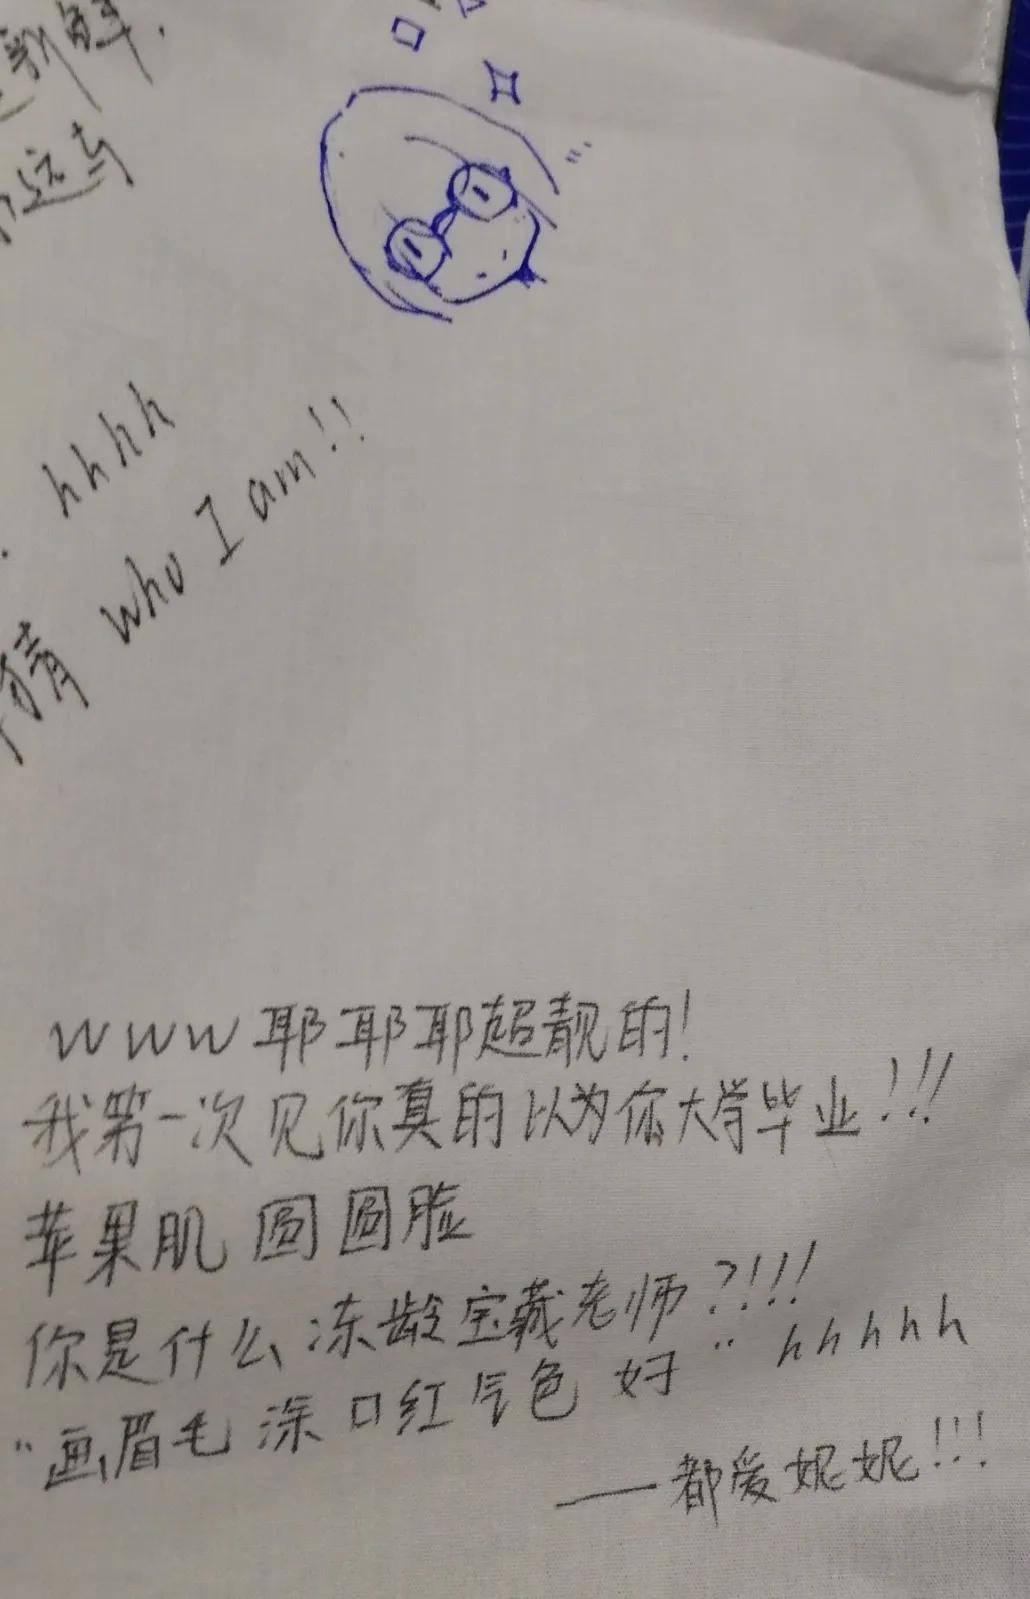 新鲜.
hhhh
猜 who I am!!
www 耶耶耶超靓的!
我第一次见你真的以为你大学毕业!!!
苹果肌 圆圆脸
你是什么冻龄宝藏老师?!!!
"画眉毛 涂口红 气色好" hhhhh
——都爱妮妮!!!